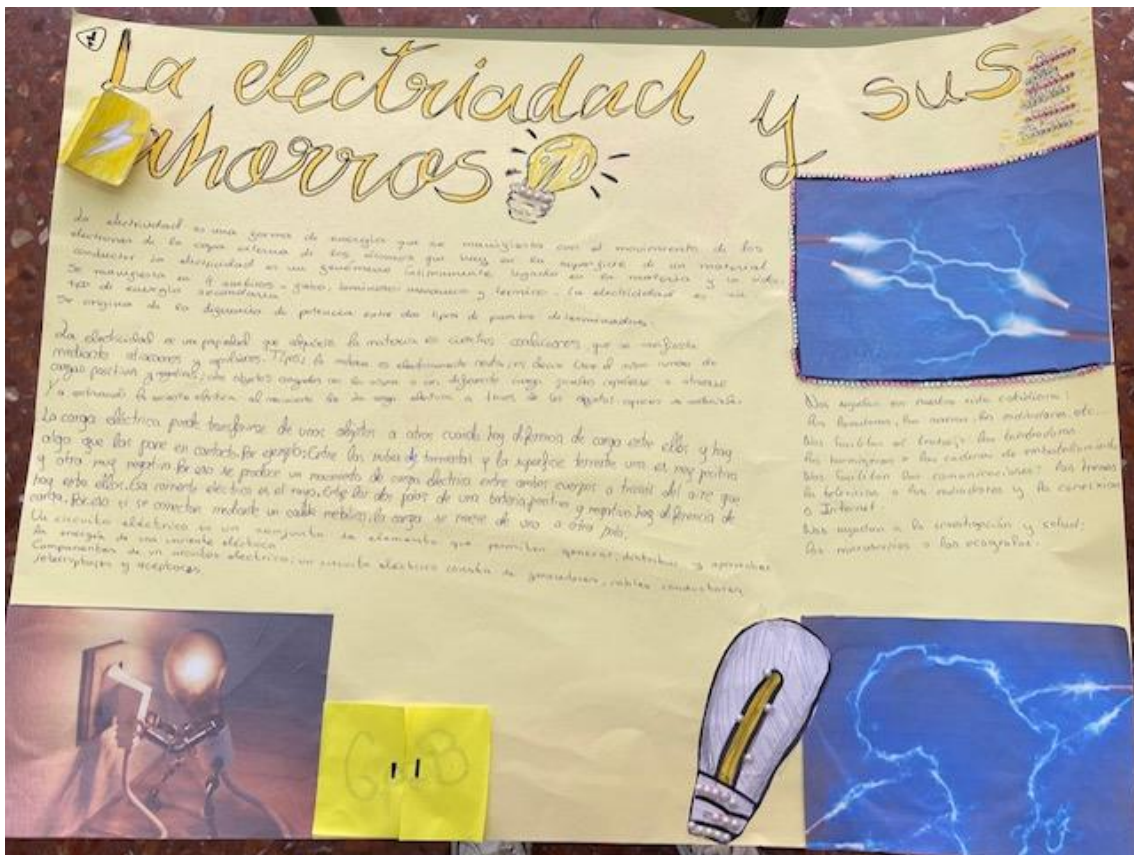 1
La electricidad y sus
ahorros
La electricidad es una forma de energía que se manifiesta con el movimiento de los
electrones de la capa externa de los átomos que hay en la superficie de un material
conductor. La electricidad es un fenómeno íntimamente ligado en la materia y la vida.
Se manifiesta en luminoso y termico. La electricidad es un
tipo de energía secundaria.
Se origina de la de potencia entre dos tipos de puntos determinados.
La electricidad es un propiedad que adquiere la materia en ciertas condiciones, que se manifiesta
mediante atracciones y repulsiones. la materia es electricamente neutra, es decir tiene el mismo numero de
cargas positivas y negativas; los objetos cargados con la misma o con diferente carga pueden repelerse o atraerse
la corriente eléctrica al movimiento de la carga eléctrica a traves de los objetos capaces de
La carga eléctrica puede transferirse de unos objetos a otros cuando hay diferencia de carga entre ellos y hay
algo que los pone en contacto. Por ejemplo: Entre las nubes de tormentas y la superficie terrestre una es muy positiva
y otra muy negativa. Por eso se produce un movimiento de carga eléctrica entre ambos cuerpos a través del aire que
hay entre ellos. Esa corriente eléctrica es el rayo. Entre los dos polos de una batería, positivo y negativo, hay diferencia de
carga. Por ello si se conectan mediante un cable metálico, la carga se mueve de uno a otro polo.
Un circuito eléctrico es un conjunto de elemento que permiten generar, distribuir y aprovechar
la energía de una corriente eléctrica.
Componentes de un circuitos electrico: un circuito eléctrico consta de generadores, cables conductores,
interruptores y
Nos ayudan en nuestra vida cotidiana:
las lavadoras, los hornos, las etc...
Nos facilitan el trabajo: las
los o las cadenas de
Nos facilitan las comunicaciones: los trenes
la televisión o los y la conexión
a Internet.
Nos ayudan a la investigación y salud:
los microscopios o las ecografías.
6º B